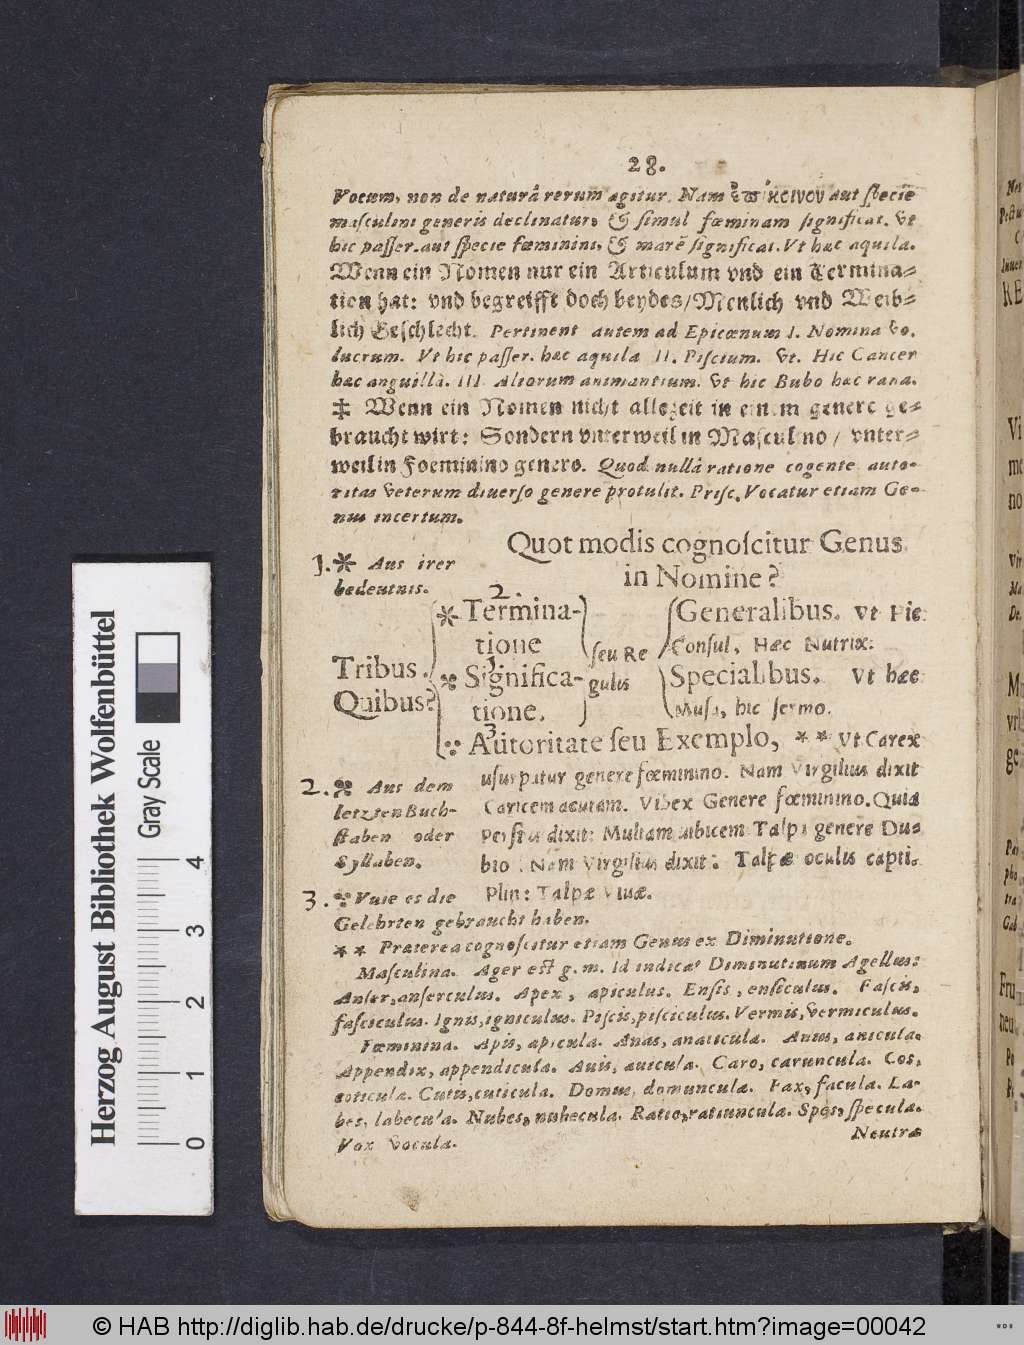 28.
Vocum, non de naturâ rerum agitur. Nam ἐπίκεινον aut specie
masculini generis declinatur, & simul fœminam significat. Vt
hic passer. aut specie fœminini, & marē significat. Vt hæc aquila.
Wenn ein Nomen nur ein Articulum vnd ein Termina-
tion hat: vnd begreifft doch beydes/Menlich vnd Weib-
lich Geschlecht. Pertinent autem ad Epicœnum I. Nomina Vo.
lucrum. Vt hic passer. hæc aquila II. Piscium. Vt. Hic Cancer
hæc anguilla. III. Aliorum animantium. Vt hic Bubo hæc rana.
‡ Wenn ein Nomen nicht allezeit in einem genere ge-
braucht wirt: Sondern vnterweil in Masculino / vnter-
weil in Foeminino genero. Quod nullâ ratione cogente auto-
ritas Veterum diuerso genere protulit. Prisc. Vocatur etiam Ge-
nus incertum.
Quot modis cognoscitur Genus
in Nomine?
1. * Aus irer
bedeutnis.
Tribus.
Quibus?
2.
* Termina-
tione
* Significa-
tione.
seu Re
gulis
Generalibus. Vt Hic
Consul, Hæc Nutrix:
Specialibus. Vt hæc
Musa, hic sermo.
3
Autoritate seu Exemplo, * * Vt Carex
usurpatur genere fœminino. Nam Virgilius dixit
Caricem acutam. Vibex Genere fœminino. Quia
Persius dixit: Multam vibicem Talpa genere Du-
bio. Nam Virgilius dixit: Talpæ oculis capti.
Plin: Talpæ Viuæ.
2. Aus dem
letzten Buch-
staben oder
Syllaben.
3. Vuie es die
Gelehrten gebraucht haben.
* * Præterea cognoscitur etiam Genus ex Diminutione.
Masculina. Ager est g. m. Id indicat Diminutiuum Agellus:
Anser, anserculus. Apex, apiculus. Ensis, ensiculus. Fascis,
fasciculus. Ignis, igniculus. Piscis, pisciculus. Vermis, Vermiculus.
Fœminina. Apis, apicula. Anas, anaticula. Anus, anicula.
Appendix, appendicula. Auis, auicula. Caro, caruncula. Cos,
coticula. Cutis, cuticula. Domus, domuncula. Fax, facula. La-
bes, labecula. Nubes, nubecula. Ratio, ratiuncula. Spes, specula.
Vox Vocula.
Neutra
Herzog August Bibliothek Wolfenbüttel
Gray Scale
0 1 2 3 4
© HAB http://diglib.hab.de/drucke/p-844-8f-helmst/start.htm?image=00042